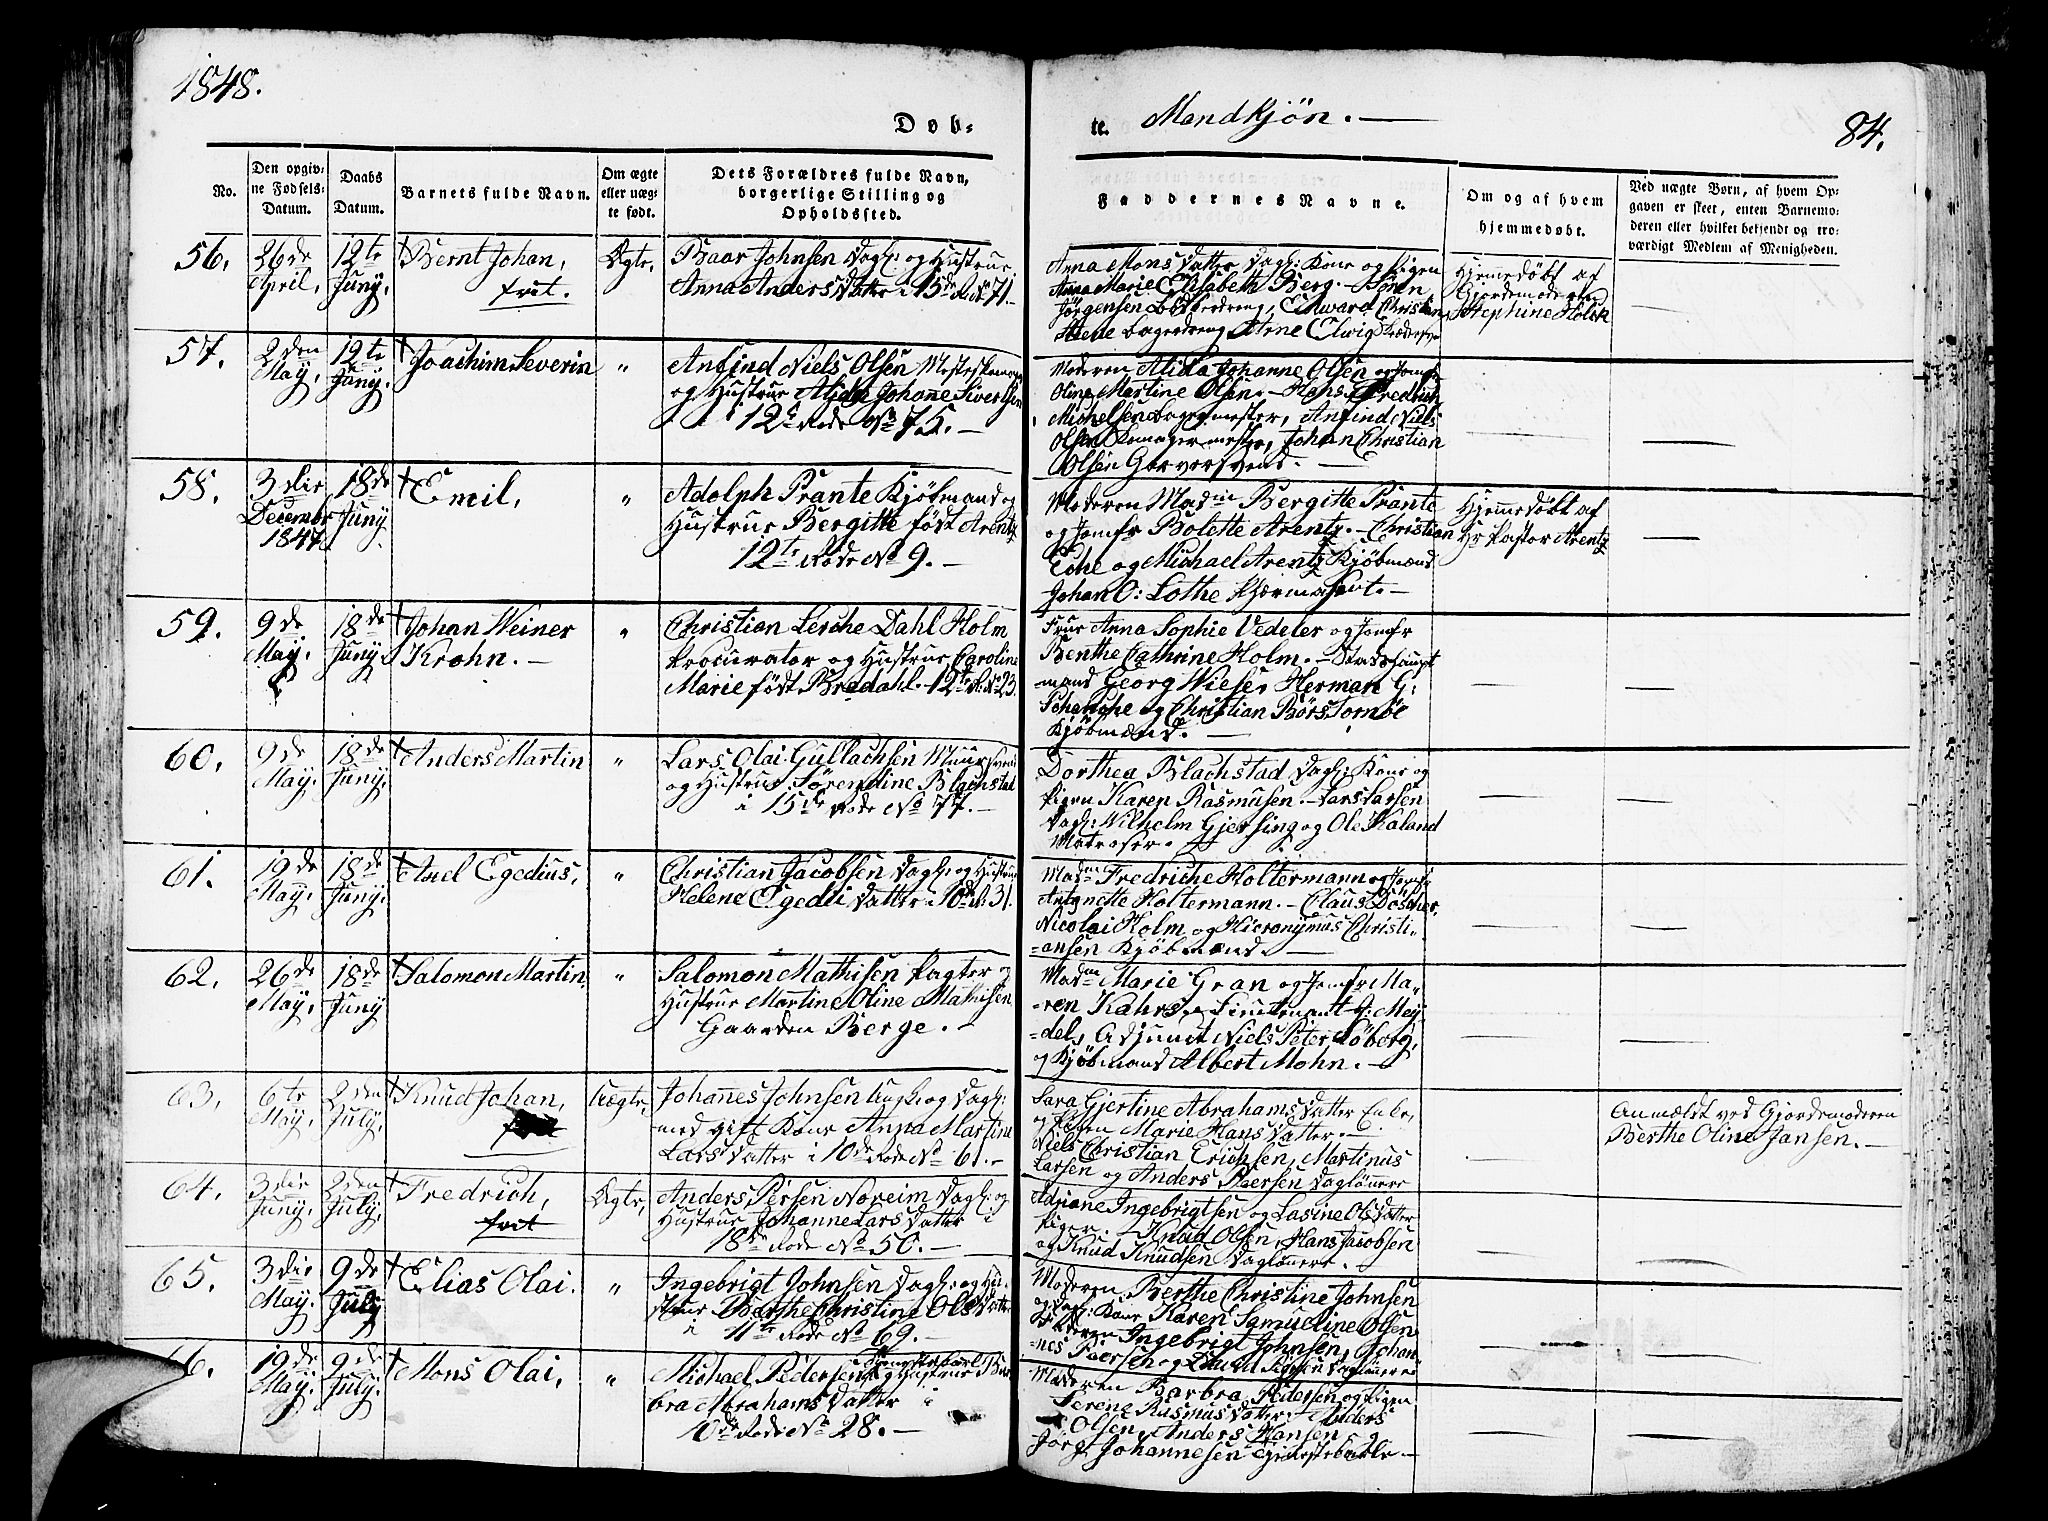 1848.
Døb-
te. Mandkjön. —
84.
No.
Den opgiv-
ne Fødsels-
Datum.
Daabs
Datum.
Barnets fulde Navn.
Om ægte
eller uæg-
te født.
Dets Forældres fulde Navn,
borgerlige Stilling og
Opholdssted.
Faddernes Navne.
Om og af hvem
hjemmedøbt.
Ved uægte Børn, af hvem Op-
gaven er skeet, enten Barnemo-
deren eller hvilket bekjendt og tro-
værdigt Medlem af Menigheden.
56.
26de
April,
12te
Juny,
Bernt Johan,
frit.
Ægte,
Baar Johnsen Dagl: og Hustrue
Anna Anders Datter i 15de R. No 71.
Anna Mons Datter Dagl: Kone og Pigen
Anna Marie Elisabeth Berg. - Sören
Jörgensen Bödkerdreng, Edward Christian
Bagerdreng Arne Elwig
Hjemedöbt af
Gjordemoderen
Stephine Holck
57.
2den
May,
12te
Juny,
Joachim Severin
"
Anfind Niels Olsen
og Hustrue Alida Johane Sivertsen
i 12te Rode No 75. —
Moderen Alida Johanne Olsen og Jomfr
Oline Martine Olsen. - Hans Fredrich
Michelsen Bagermester, Anfind Niels
Olsen Johan Christian
Olsen Garversvend. —
58.
3die
Decembr
1847.
18de
Juny
Emil,
"
Adolph Prante Kjöbmand og
Hustrue Bergitte født Arentz
12te Rode No 9. —
Moderen Madm Bergitte Prante
og Jomfr Bolette Arentz. - Christian
Eche og Michael Arentz Kjöbmænd
Johan O: Lothe
Hjemmedöbt af
Hr Pastor Arentz
59.
9de
May,
18de
Juny.
Johan Weiner
Krohn. —
"
Christian Lerche Dahl Holm
Procurator og Hustrue Caroline
Marie født Bredahl. - 12te R. No 23.
Frue Anna Sophie Vedeler og Jomfr
Benthe Cathrine Holm. - Stadshaupt
mand Georg Wiese, Herman G:
Schenche og Christian Börs Tornöe
Kjöbmænd. —
60.
9de
May.
18de
Juny.
Anders Martin
"
Lars Olai Gullachsen Muursvend
og Hustrue Sörendine Blachstad
i 15de Rode No 77. —
Dorthea Blachstad Dagl: Kone og
Pigen Karen Rasmusen. - Lars Larsen
Dagl: Wilhelm Gjersing og Ole Kaland
Matroser. —
61.
19de
May.
18de
Juny.
Axel Egedius,
"
Christian Jacobsen Dagl: og Hustrue
Helene Egedii Datter i 10de R. 31.
Madm Fredriche Holtermann og Jomfr
Antonette Holtermann. - Claus Dösher,
Nicolai Holm og Hieronymus Christi-
=ansen Kjöbmænd. —
62.
26de
May,
18de
Juny
Salomon Martin,
"
Salomon Mathisen Pagter og
Hustrue Martine Oline Mathisen
Gaarden Berge. —
Madm Marie Gran og Jomfr Ma-
=ren Kahrs. - Lieutenant J: Mey-
=del, Adjunct Niels Peter Söborg,
og Kjöbmand Albert Mohn. —
63.
6te
May,
2den
July,
Knud Johan,
Uægte,
Johanes Johnsen Ungk. og Dagl:
med gift Kone Anna Martine
Lars Datter i 10de Rode No 61. —
Lara Gjertine Abrahams Datter Enke,
og Pigen Marie Hans Datter. —
Niels Christian Erichsen, Martinus
Larsen og Anders Peersen Daglönere
Anmeldt ved Gjordemoderen
Berthe Oline Jansen. —
64.
3die
Juny,
2den
July,
Fredrich,
frit
Ægte,
Anders Persen Noreim Dagl: og
Hustrue Johanne Lars Datter i
18de Rode No 50. —
Adriane Ingebrigtsen og Lasine Ols Datter
Piger. Knud Olsen, Hans Jacobsen
og Knud Knudsen Daglönere.
65.
3die
May.
9de
July
Elias Olai.
"
Ingebrigt Johnsen Dagl: og Hu-
strue Berthe Christine Ols Datter
i 11te Rode No 69. —
Moderen Berthe Christine Johnsen
og Dagl: Kone Karen Samueline Olsen
Faderen Ingebrigt Johnsen, Johan-
=nes Peersen og Daglönere
66.
19de
May.
9de
July.
Mons Olai,
"
Michael Pedersen og Hustrue Bar-
bra Abrahams Datter i
10de Rode No 28. —
Moderen Barbra Pedersen og Pigen
Serene Rasmus Datter. - Anders
Olsen, Anders Hansen og
Jörg. Johannesen